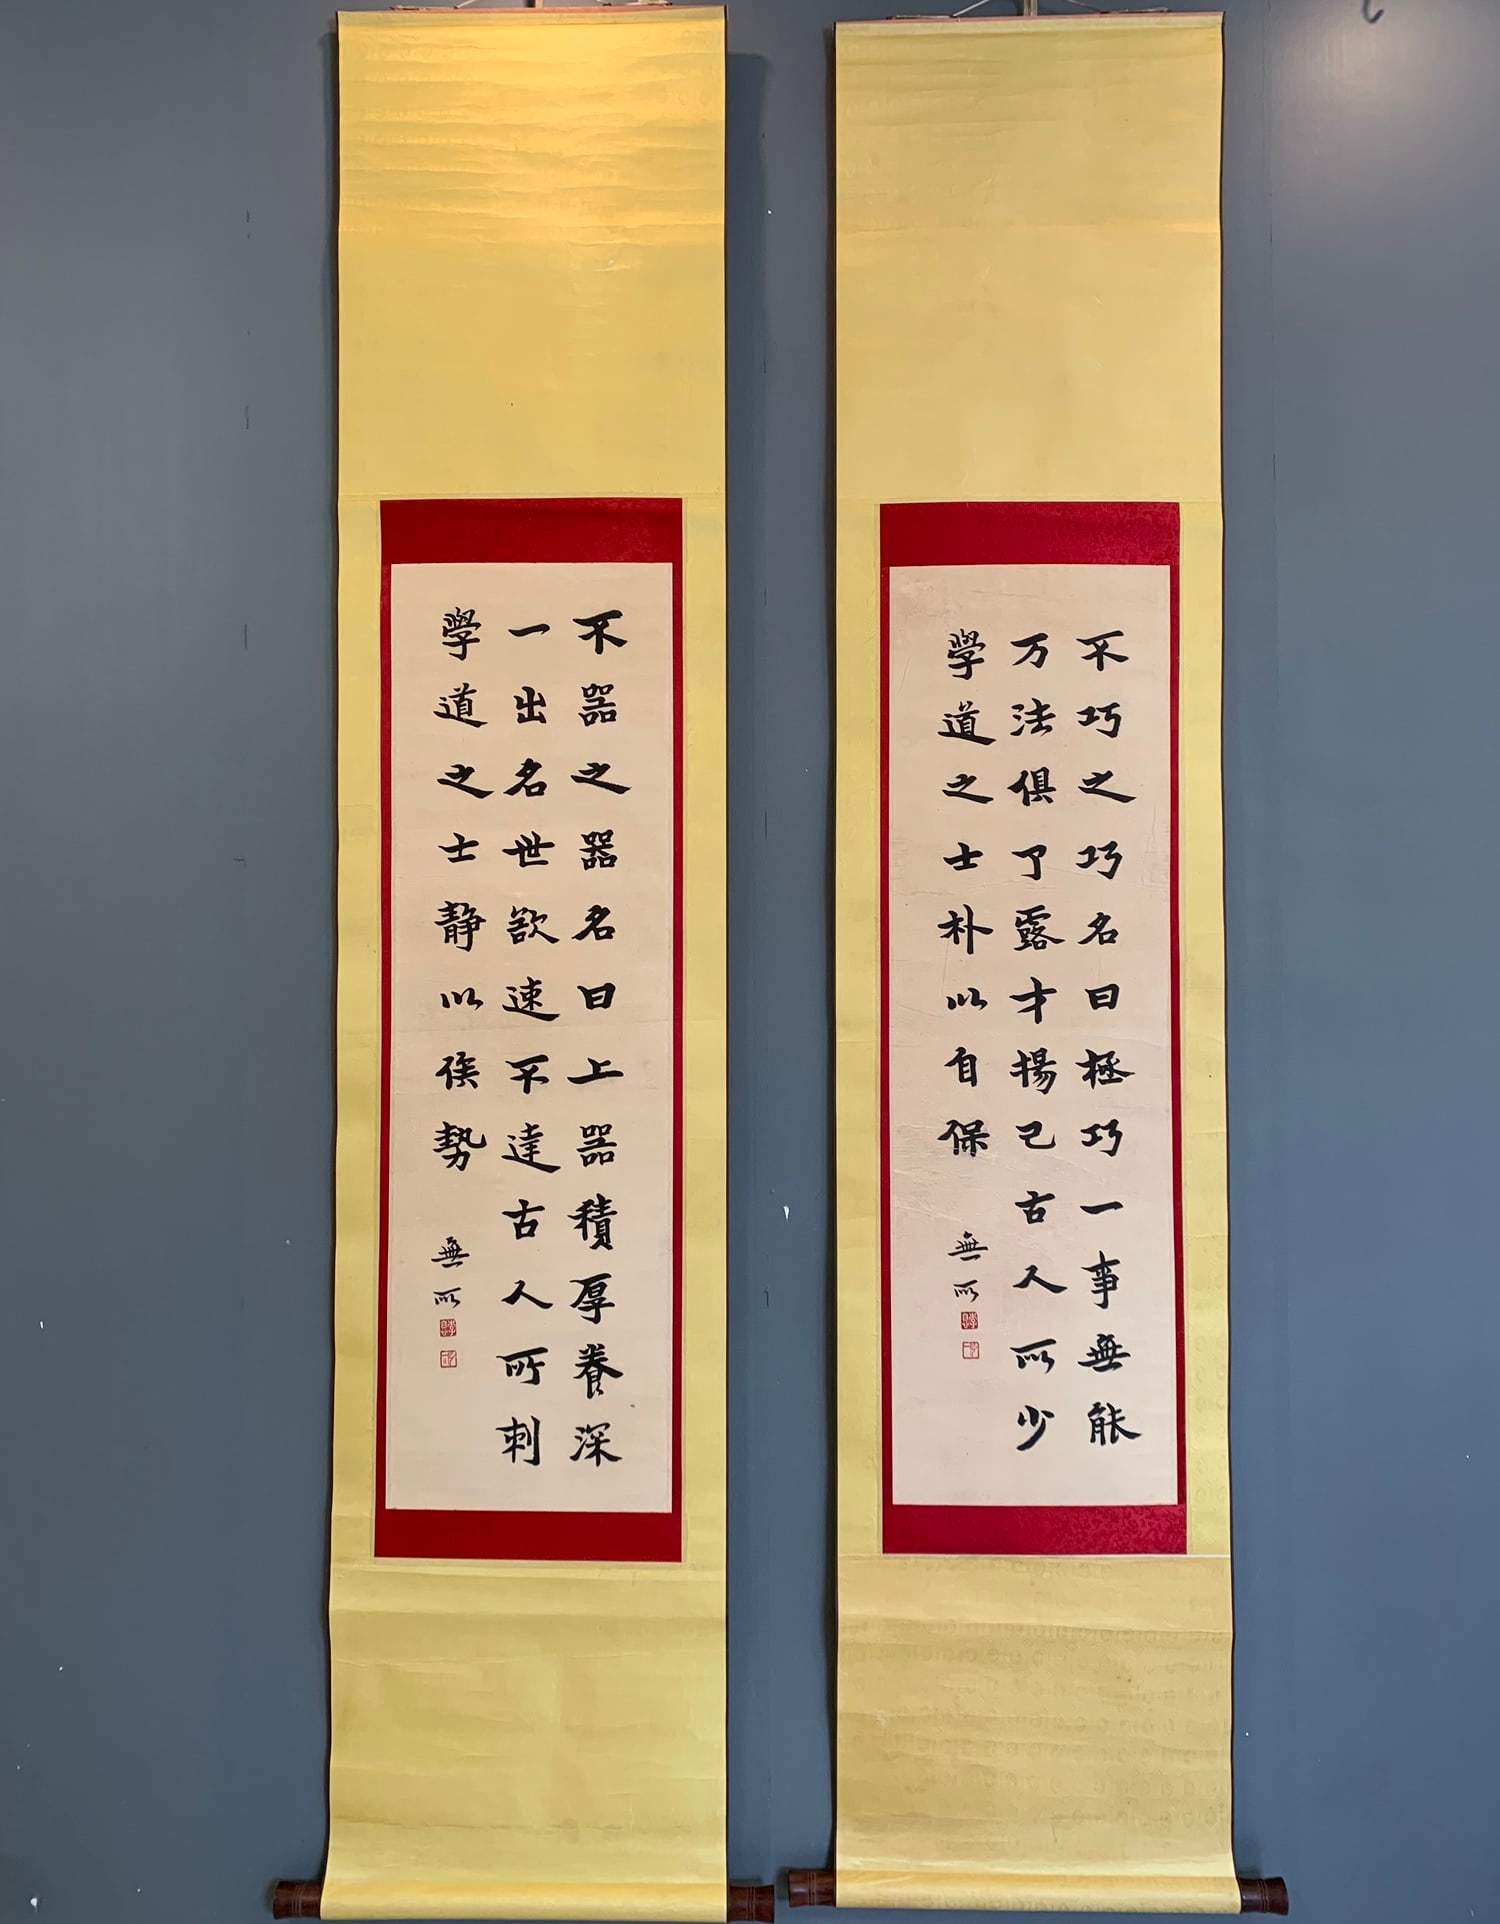 不巧之巧名曰極巧一事無能
万法俱了露才揚己古人所少
學道之士朴以自保
無所
不器之器名曰上器積厚養深
一出名世欲速不達古人所刺
學道之士靜以俟勢
無所